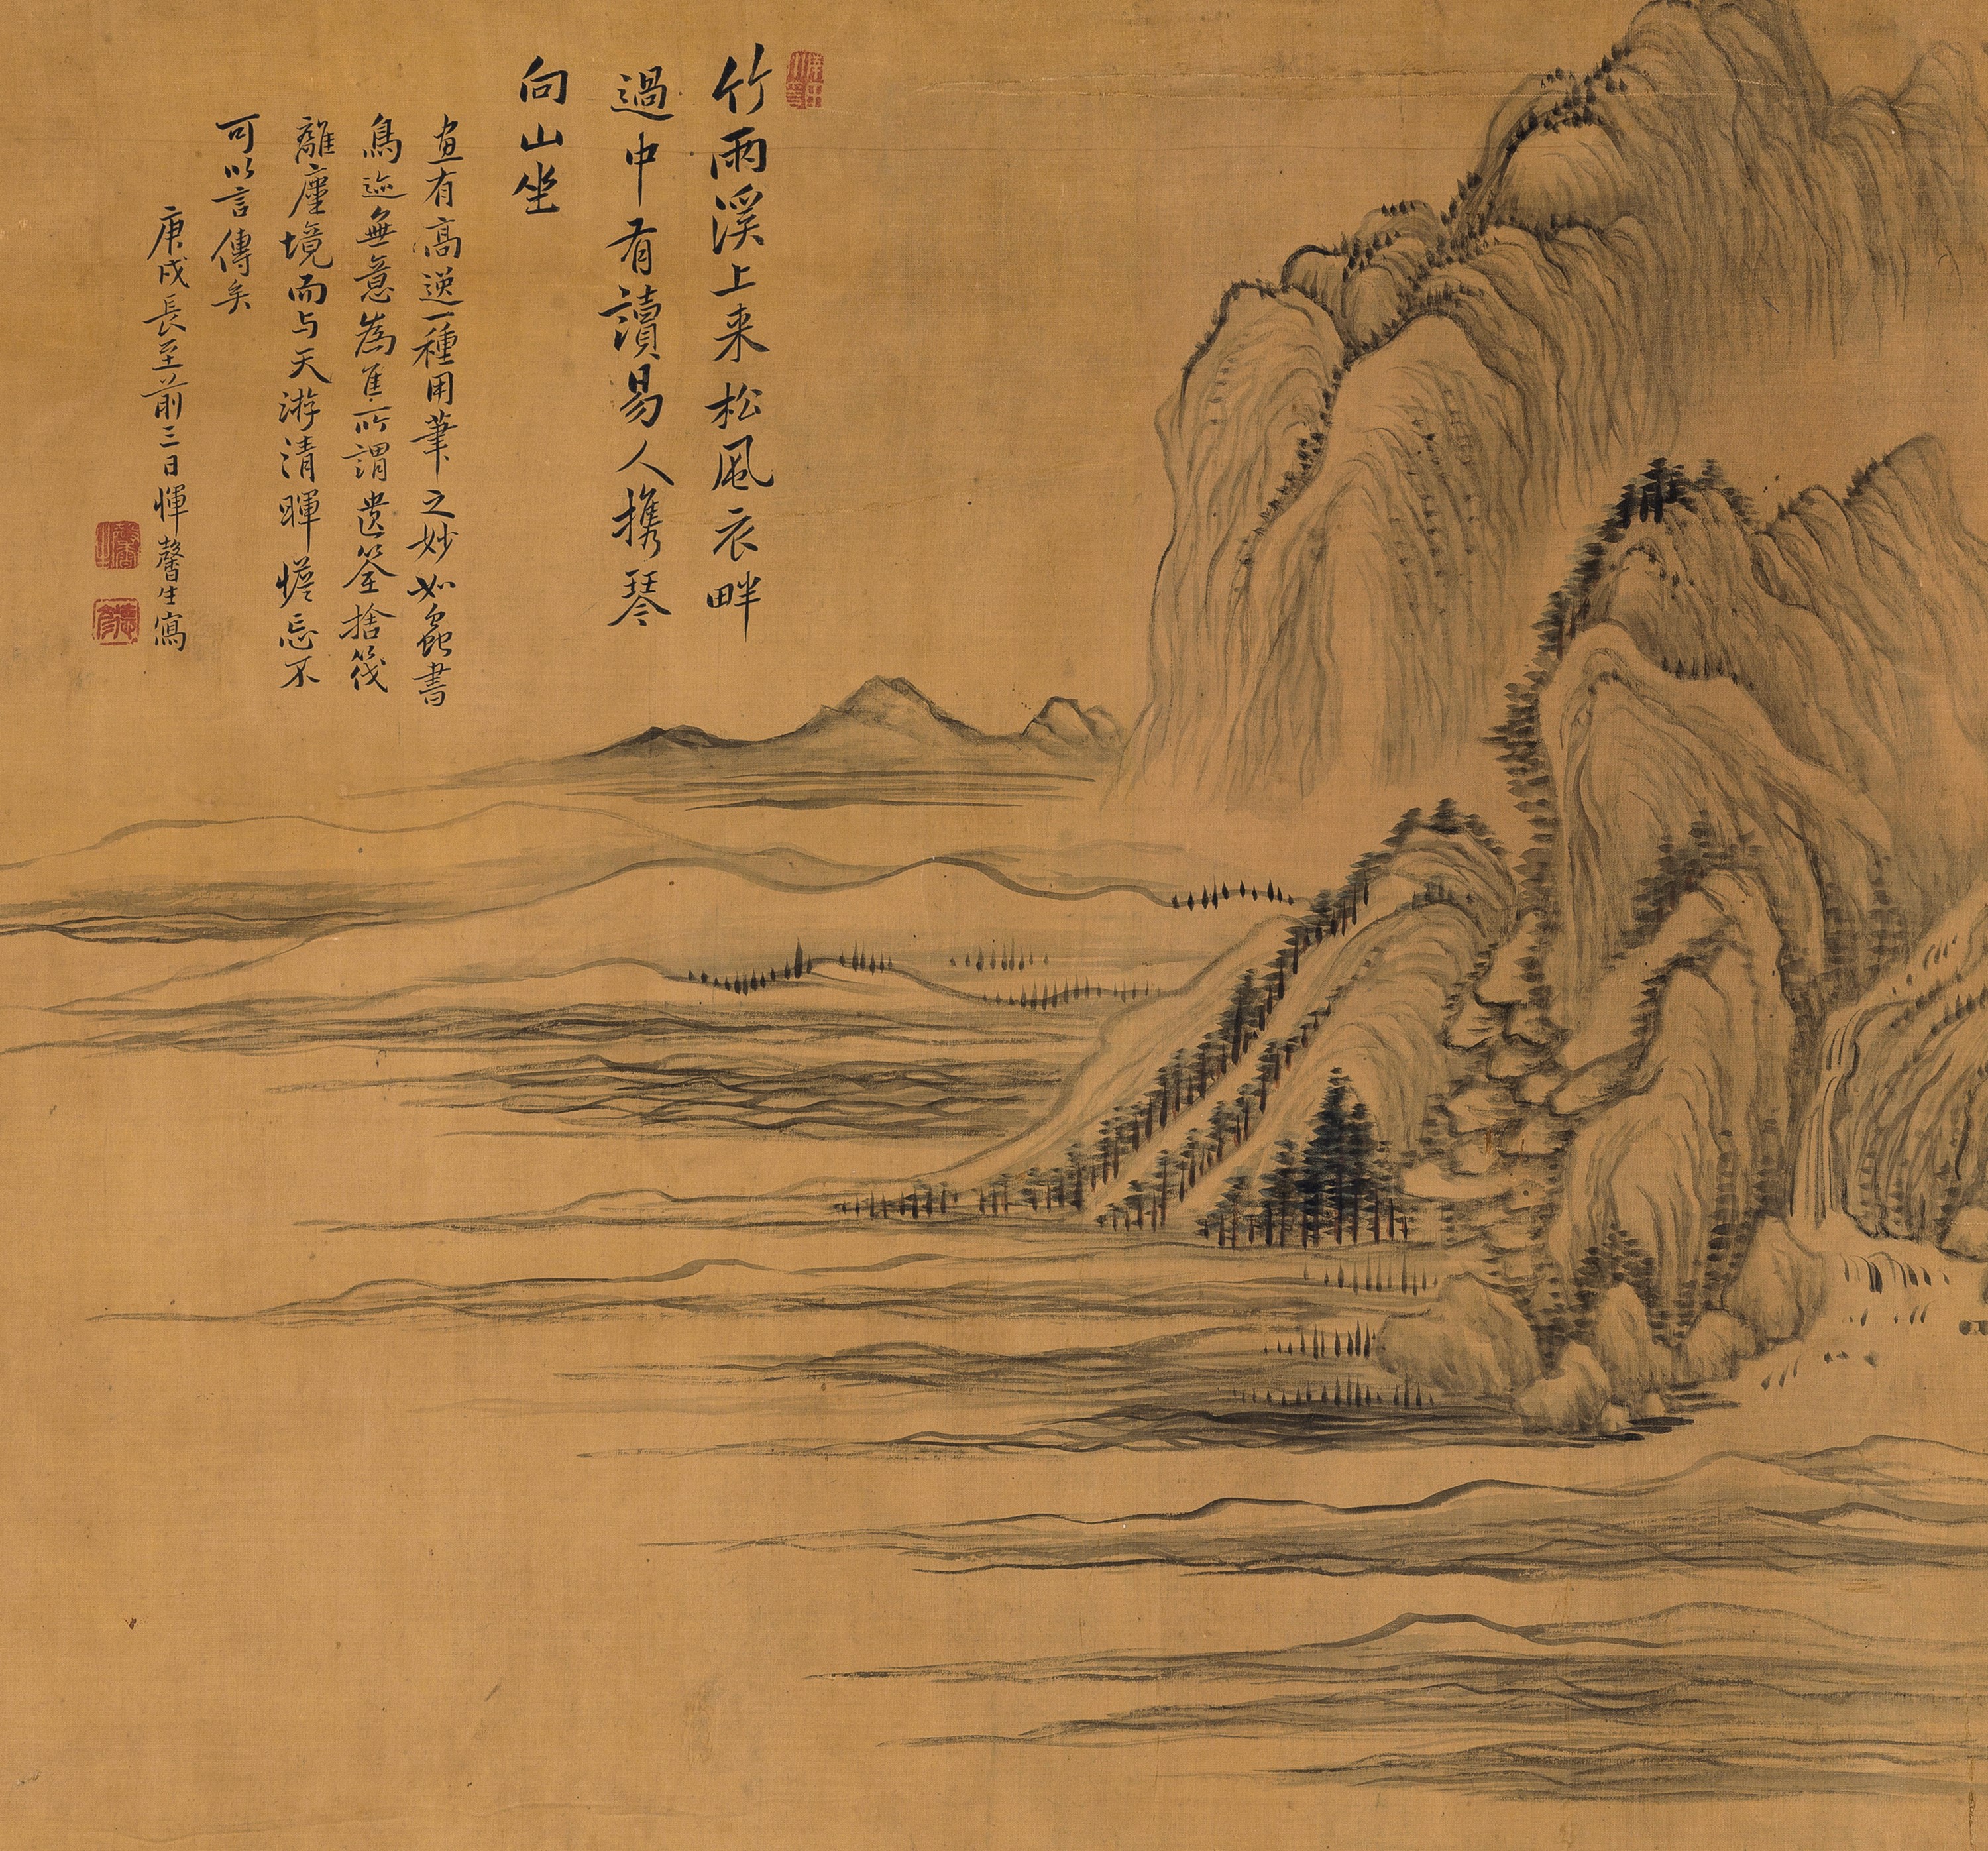 竹雨溪上来松風衣畔
過中有讀易人攜琴
向山坐
畫有高逸一種用筆之妙如蟲書
鳥迹無意為隹所謂遺筌捨筏
離塵境而与天游清暉澹忘不
可以言傳矣
庚戌長至前三日惲馨生寫